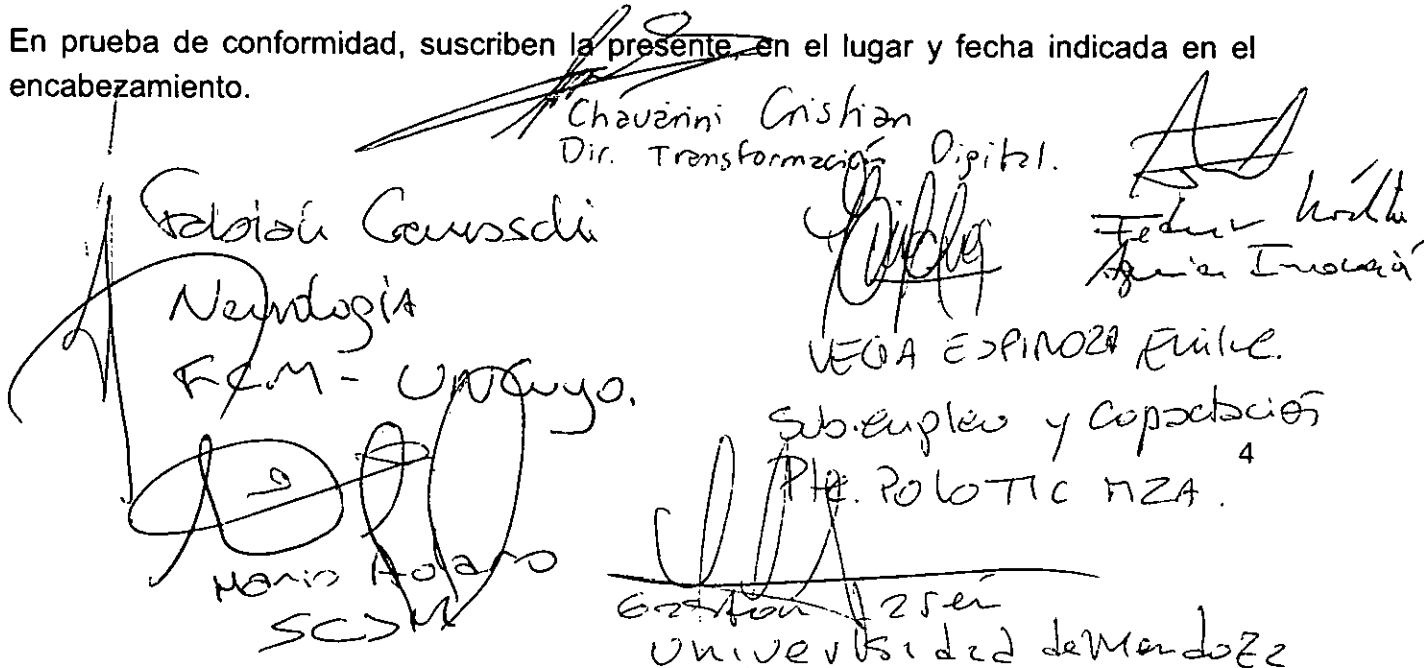 En prueba de conformidad, suscriben la presente, en el lugar y fecha indicada en el
encabezamiento.
Chavarini Cristian
Dir. Transformación Digital.
Fabián
Neurología
FCM - UNCuyo.
Agencia Innovación
VEGA ESPINOZA Emilce.
Sub. empleo y Capacitación
4
Pte. POLO TIC MZA.
Mario
SCDM
Gastón
Universidad de Mendoza